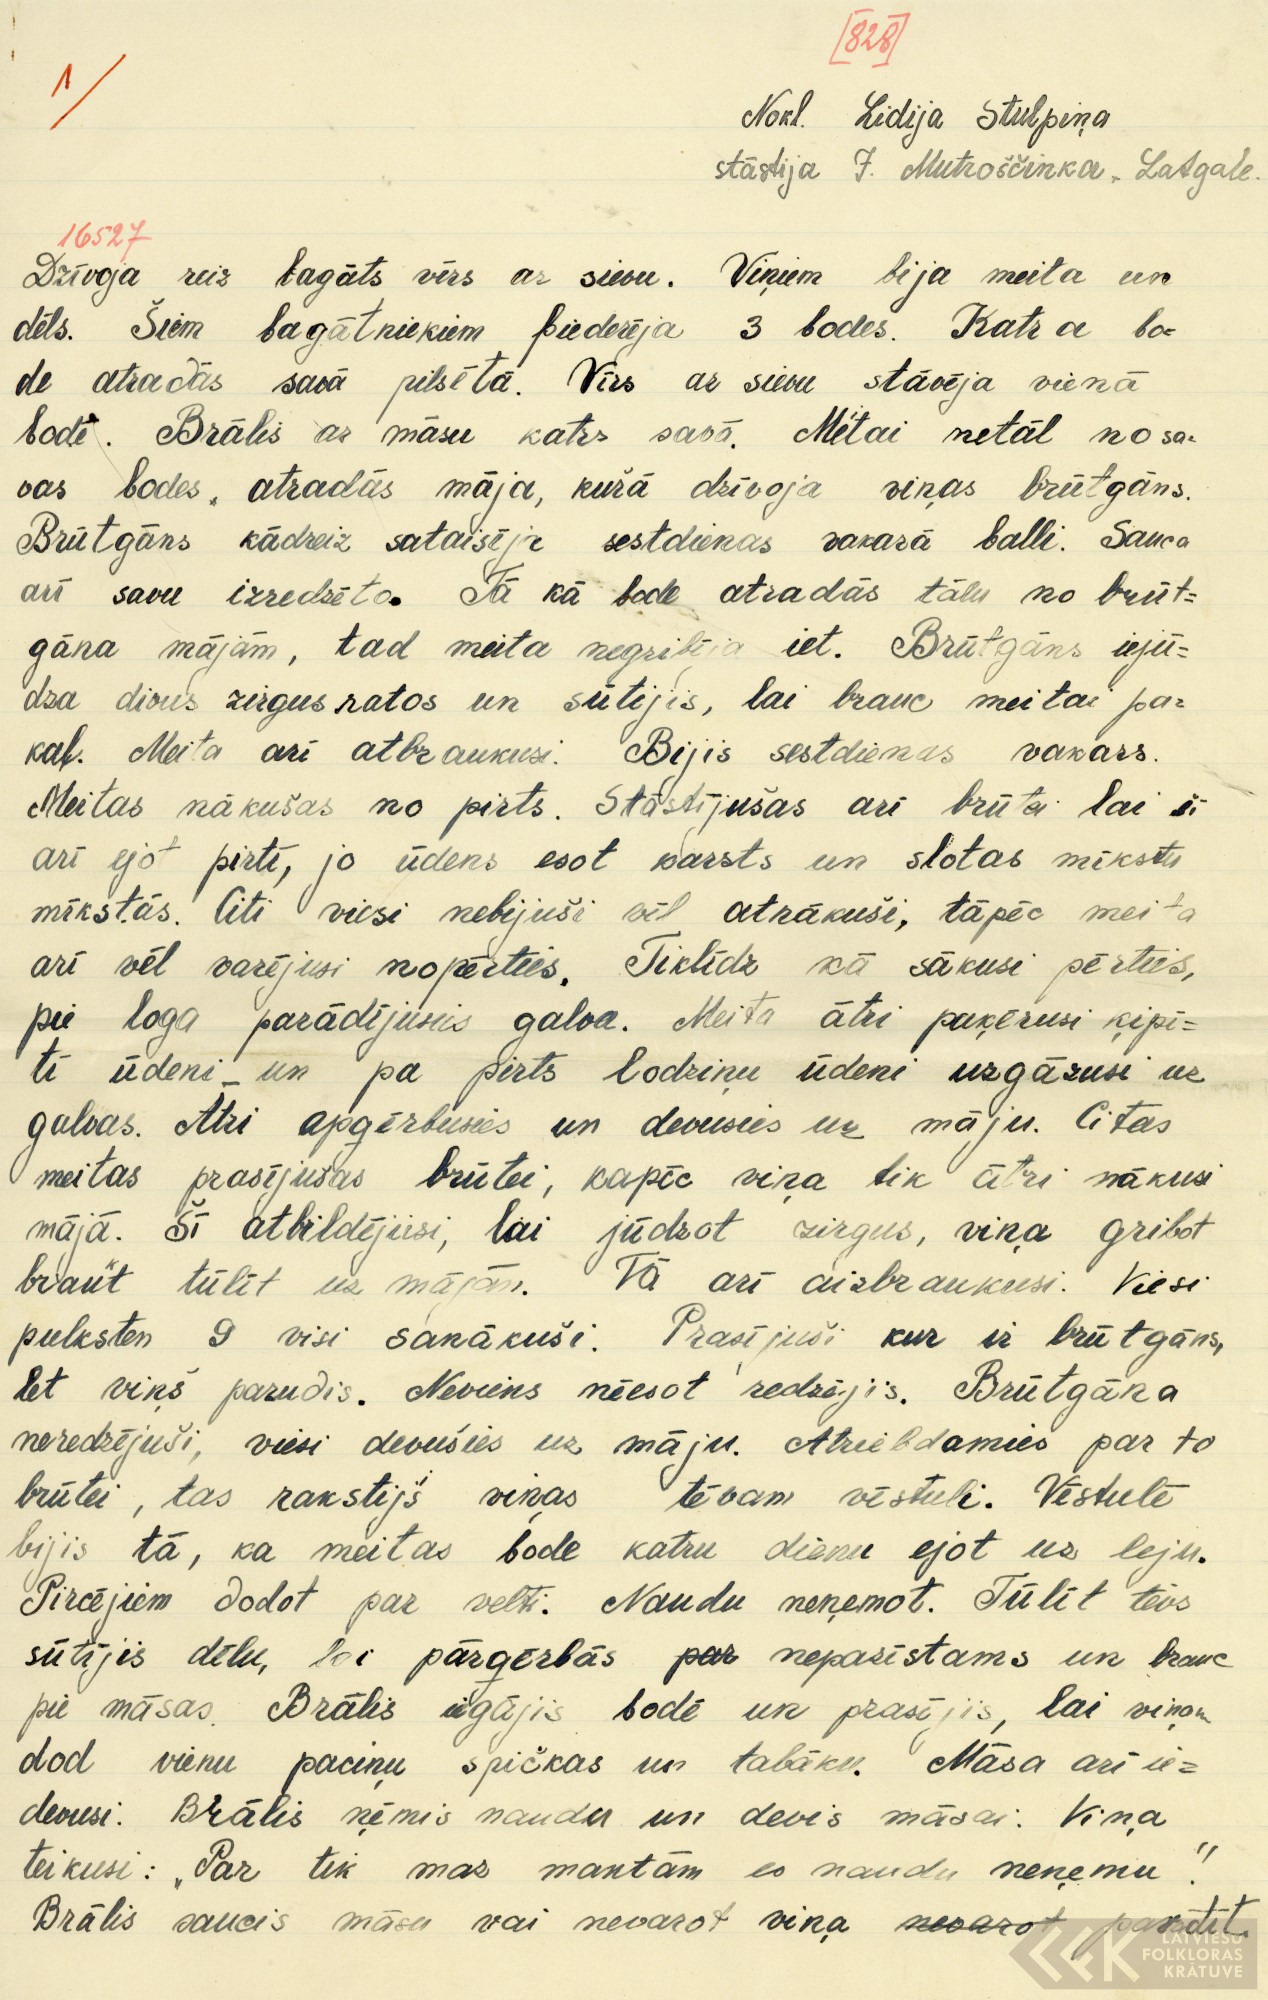 [828]
1/
Nokl. Lidija Stulpiņa
stāstija J. Mutroščinka. Latgale.
16527
Dzīvoja reiz bagāts vīrs ar sievu. Viņiem bija meita un
dēls. Šiem bagātniekiem piederēja 3 bodes. Katra bo=
de atradās savā pilsētā. Vīrs ar sievu stāvēja vienā
bodē. Brālis ar māsu katrs savā. Meitai netāl no sa=
vas bodes, atradās māja, kuŗā dzīvoja viņas brūtgāns.
Brūtgāns kādreiz sataisīja sestdienas vakarā balli. Sauca
arī savu izredzēto. Tā kā bode atradās tālu no brūt=
gāna mājām, tad meita negribēja iet. Brūtgāns iejū=
dza divus zirgus ratos un sūtijis, lai brauc meitai pa=
kaļ. Meita arī atbraukusi. Bijis sestdienas vakars.
Meitas nākušas no pirts. Stāstījušas arī brūtei lai šī
arī ejot pirtī, jo ūdens esot karsts un slotas mīkstu
mīkstās. Citi viesi nebijuši vēl atnākuši, tāpēc meita
arī vēl varējusi nopērties. Tiklīdz kā sākusi pērties,
pie loga parādījusies galva. Meita ātri paķērusi ķipī=
tī ūdeni un pa pirts lodziņu ūdeni uzgāzusi uz
galvas. Ātri apģērbusies un devusies uz māju. Citas
meitas prasījušas brūtei, kapēc viņa tik ātri nākusi
mājā. Šī atbildējusi, lai jūdzot zirgus, viņa gribot
braukt tūlīt uz mājām. Tā arī aizbraukusi. Viesi
pulksten 9 visi sanākuši. Prasījuši kur ir brūtgāns,
bet viņš pazudis. Neviens nēesot redzējis. Brūtgāna
neredzējuši, viesi devušies uz māju. Atriebdamies par to
brūtei, tas rakstījis viņas tēvam vēstuli. Vēstulē
bijis tā, ka meitas bode katru dienu ejot uz leju.
Pircējiem dodot par velti. Naudu neņemot. Tūlīt tēvs
sūtījis dēlu, lai pārģērbās par nepazīstams un brauc
pie māsas. Brālis iegājis bodē un prasījis, lai viņam
dod vienu paciņu spičkas un tabāku. Māsa arī ie=
devusi. Brālis ņēmis naudu un devis māsai. Viņa
teikusi: „Par tik maz mantām es naudu neņemu".
Brālis saucis māsu vai nevarot viņa nevarot parādīt
LATVIEŠU
FOLKLORAS
KRĀTUVE